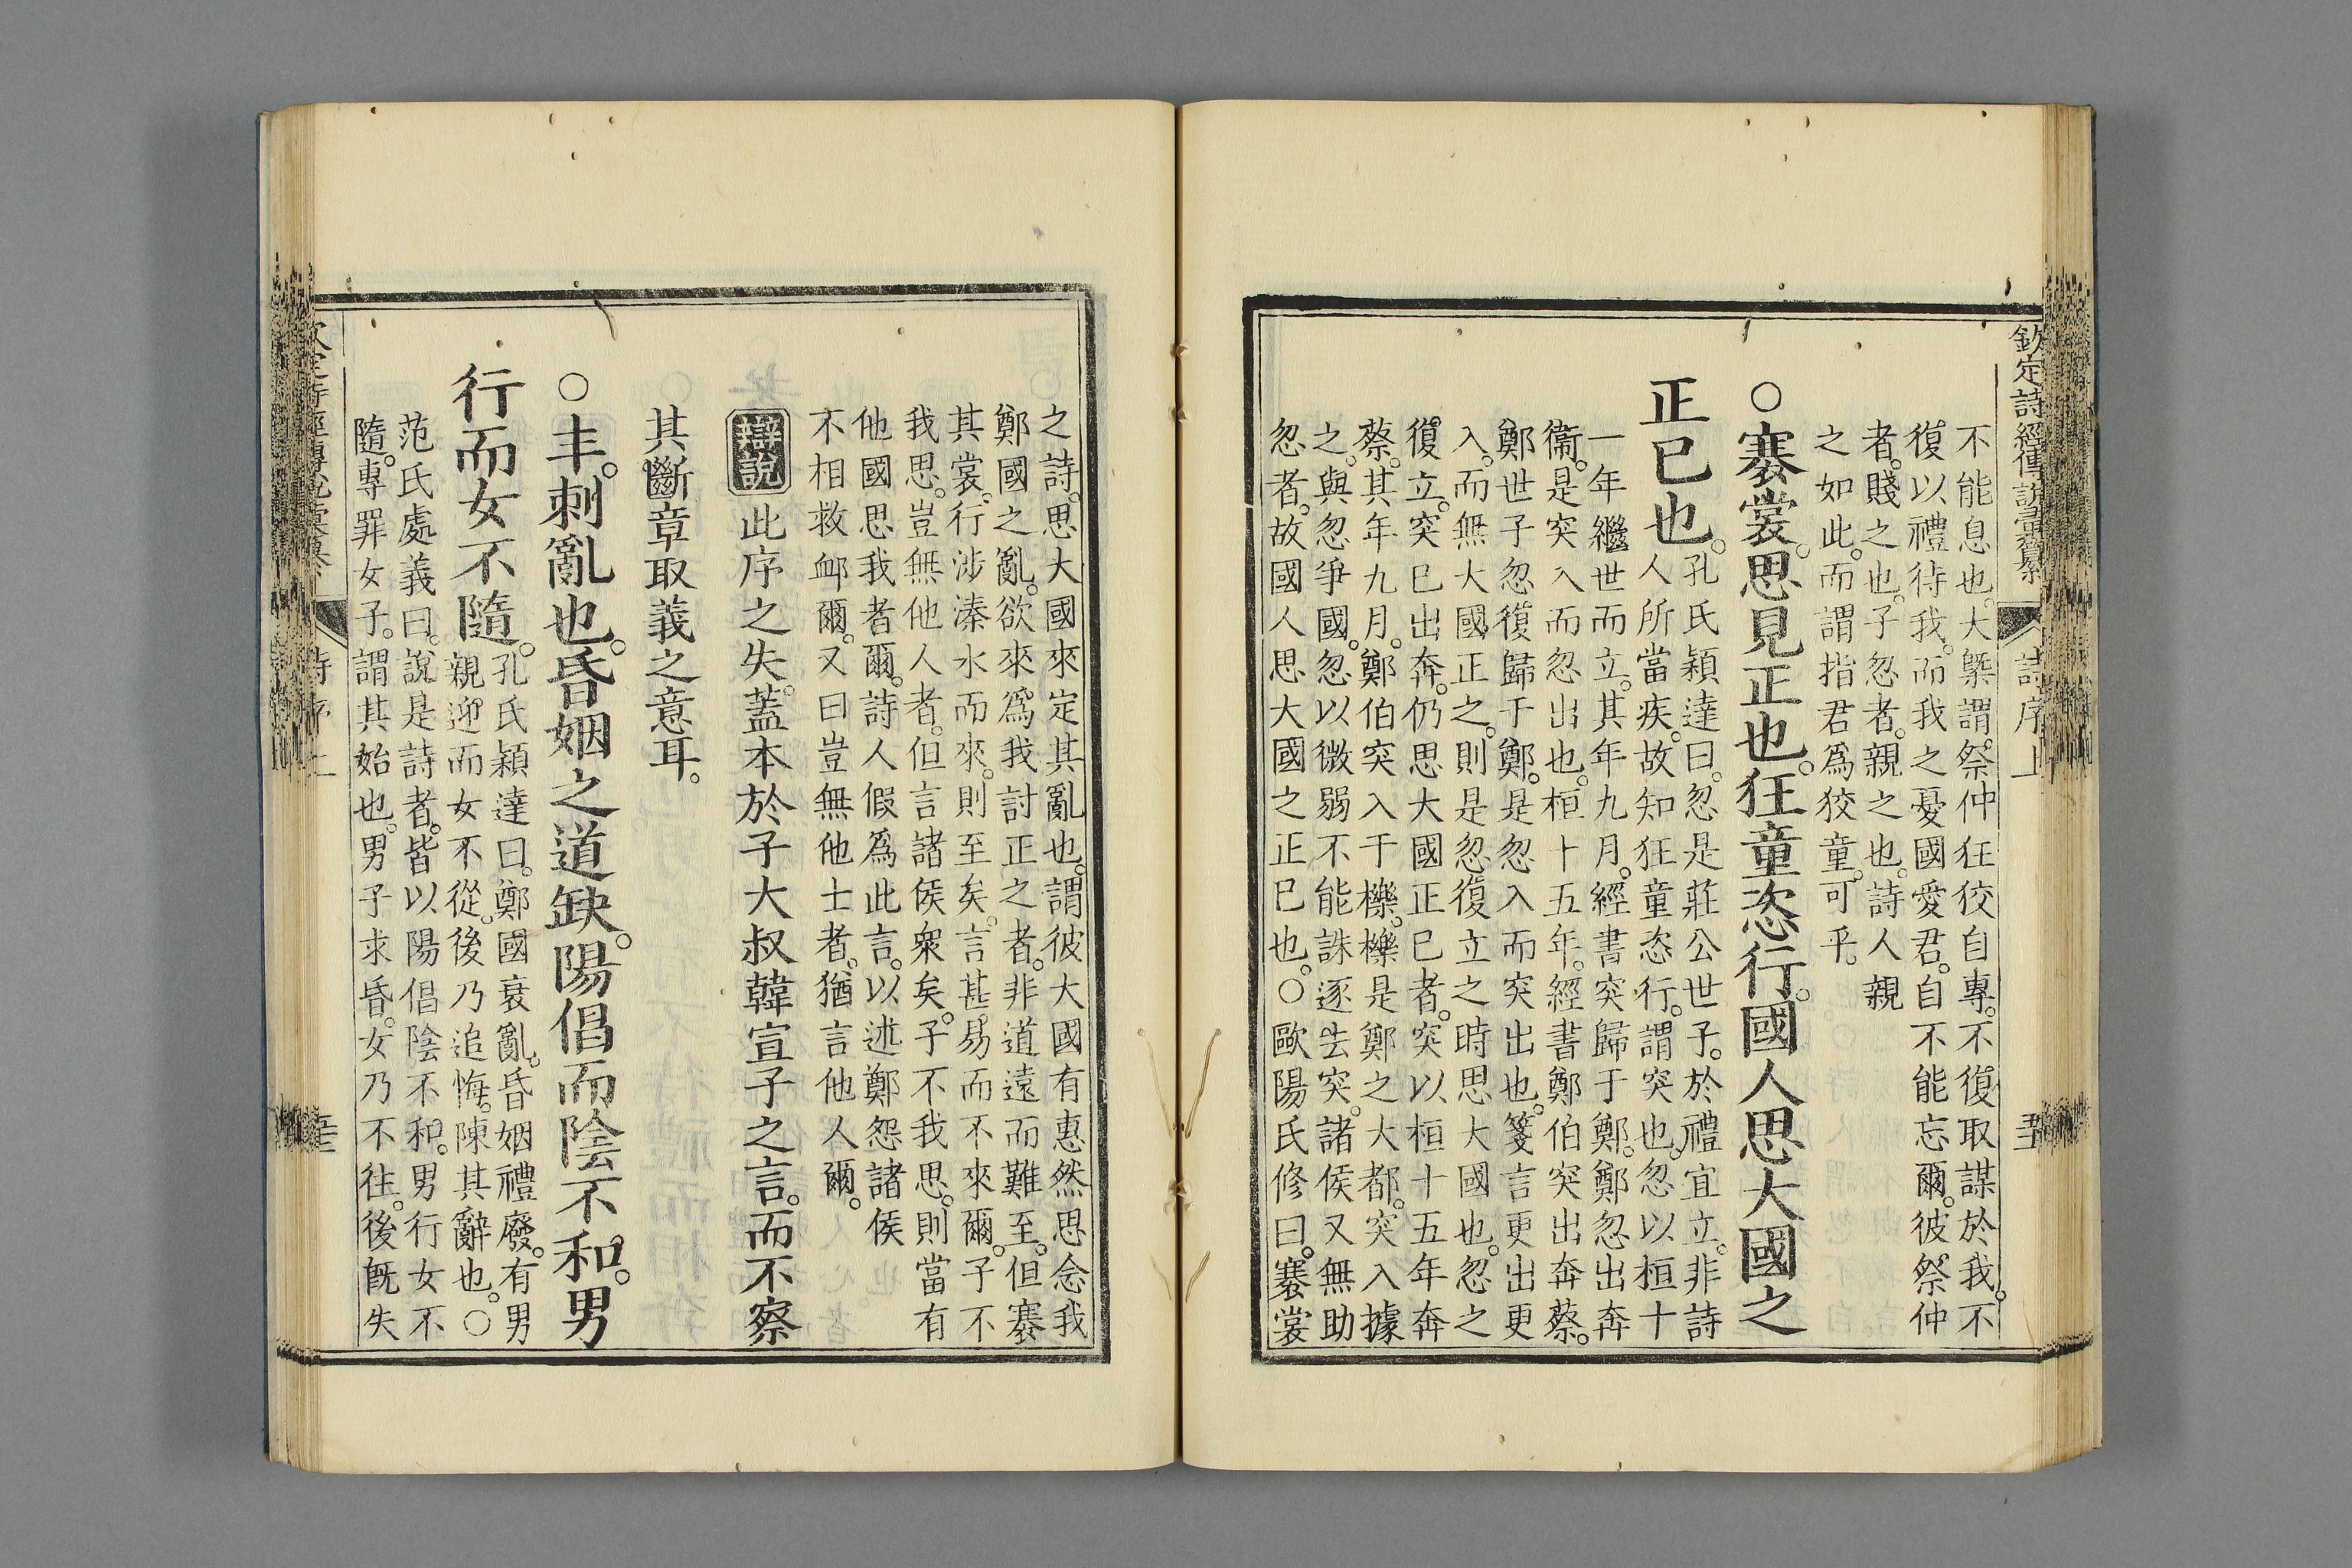 欽定詩經傳說彙纂
詩序上
不能息也。大槩謂。祭仲狂狡自專。不復取謀於我。不
復以禮待我。而我之憂國愛君。自不能忘爾。彼祭仲
者。賤之也。子忽者。親之也。詩人親
之如此。而謂指君爲狡童。可乎。
○褰裳。思見正也。狂童恣行。國人思大國之
正已也。
孔氏穎達曰。忽是莊公世子。於禮宜立。非詩
人所當疾。故知狂童恣行。謂突也。忽以桓十
一年繼世而立。其年九月。經書突歸于鄭。鄭忽出奔
衞。是突入而忽出也。桓十五年。經書鄭伯突出奔蔡。
鄭世子忽復歸于鄭。是忽入而突出也。箋言更出更
入。而無大國正之。則是忽復立之時思大國也。忽之
復立。突已出奔。仍思大國正已者。突以桓十五年奔
蔡。其年九月。鄭伯突入于櫟。櫟是鄭之大都。突入據
之。與忽爭國。忽以微弱不能誅逐去突。諸侯又無助
忽者。故國人思大國之正已也。○歐陽氏修曰。褰裳
之詩。思大國來定其亂也。謂彼大國有惠然思念我
鄭國之亂。欲來爲我討正之者。非道遠而難至。但褰
其裳。行涉溱水而來。則至矣。言甚易而不來爾。子不
我思。豈無他人者。但言諸侯衆矣。子不我思。則當有
他國思我者爾。詩人假爲此言。以述鄭怨諸侯
不相救卹爾。又曰豈無他士者。猶言他人爾。
辯說
此序之失。蓋本於子大叔韓宣子之言。而不察
其斷章取義之意耳。
○丰。刺亂也。昏姻之道缺。陽倡而陰不和。男
行而女不隨。
孔氏穎達曰。鄭國衰亂。昏姻禮廢。有男
親迎而女不從。後乃追悔。陳其辭也。○
范氏處義曰。說是詩者。皆以陽倡陰不和。男行女不
隨。專罪女子。謂其始也。男子求昏。女乃不往。後旣失